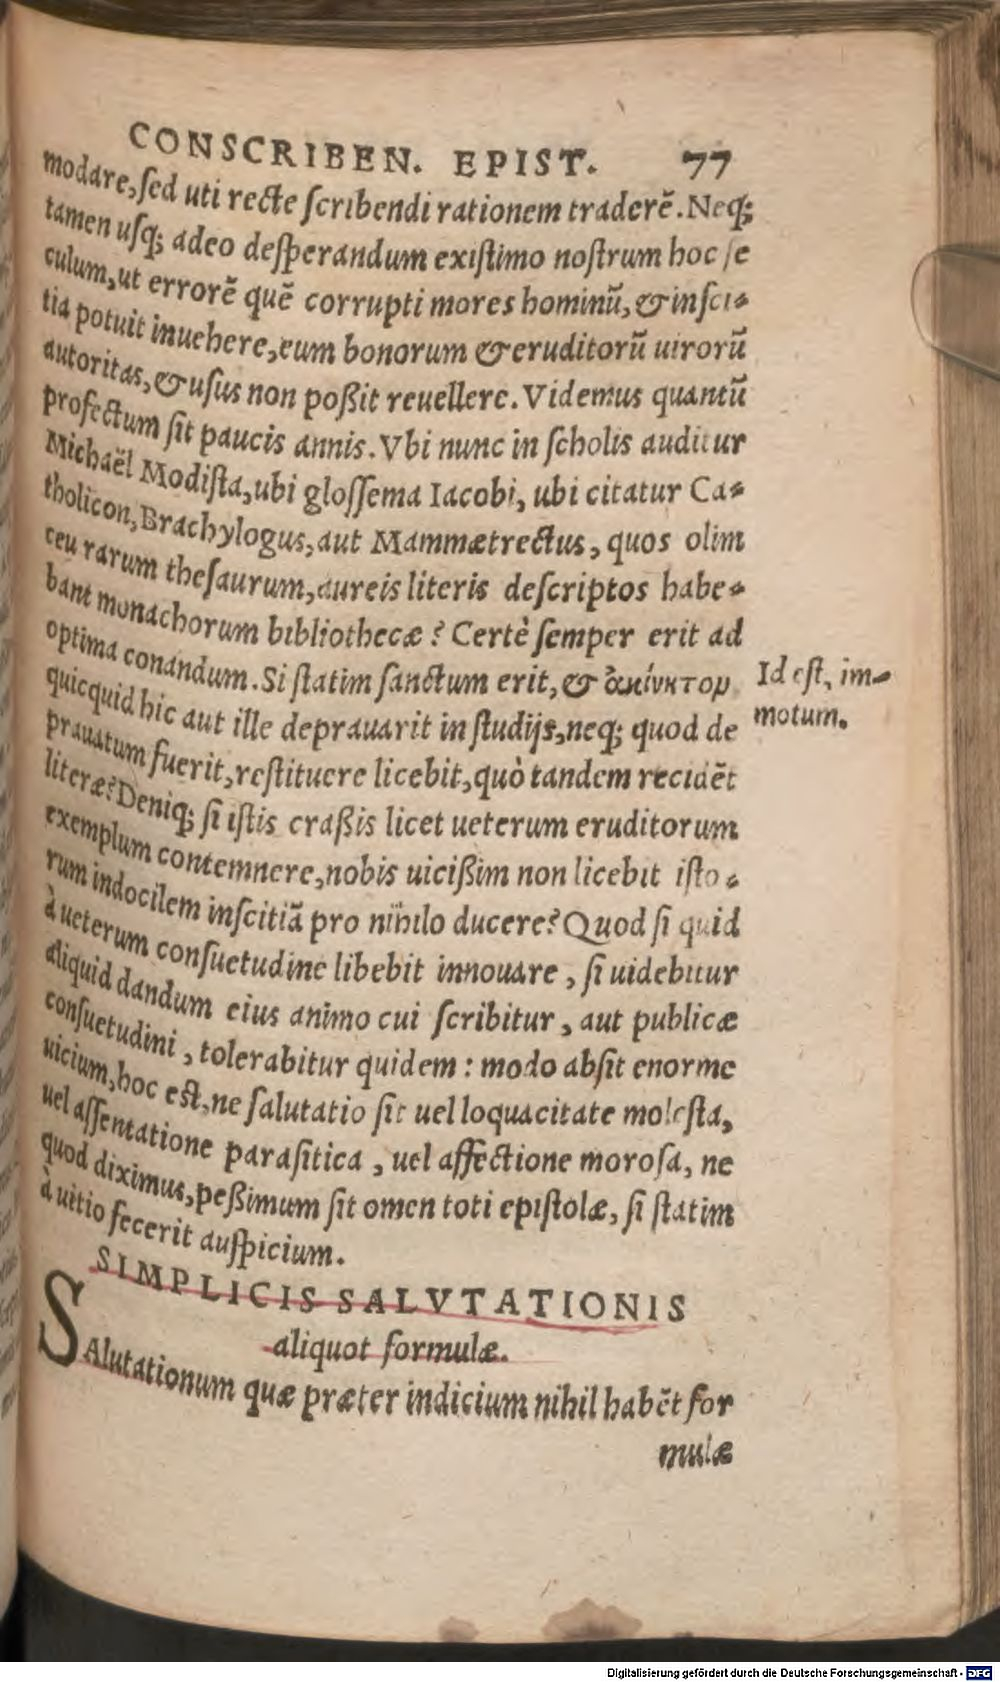 CONSCRIBEN. EPIST. 77
modare, sed uti recte scribendi rationem traderē. Neq;
tamen usq; adeo desperandum existimo nostrum hoc se
culum, ut errorē quē corrupti mores hominū, & insci-
tia potuit inuehere, eum bonorum & eruditorū uirorū
autoritas, & usus non poßit reuellere. Videmus quantū
profectum sit paucis annis. Vbi nunc in scholis auditur
Michaël Modista, ubi glossema Iacobi, ubi citatur Ca-
tholicon, Brachylogus, aut Mammætrectus, quos olim
ceu rarum thesaurum, aureis literis descriptos habe-
bant monachorum bibliothecæ? Certè semper erit ad
optima conandum. Si statim sanctum erit, & ἀκίνητον
quicquid hic aut ille deprauarit in studijs, neq; quod de
prauatum fuerit, restituere licebit, quò tandem recidēt
literæ? Deniq; si istis craßis licet ueterum eruditorum
exemplum contemnere, nobis uicißim non licebit isto-
rum indocilem inscitiā pro nihilo ducere? Quod si quid
à ueterum consuetudine libebit innouare, si uidebitur
aliquid dandum eius animo cui scribitur, aut publicæ
consuetudini, tolerabitur quidem: modo absit enorme
uicium, hoc est, ne salutatio sit uel loquacitate molesta,
uel assentatione parasitica, uel affectione morosa, ne
quod diximus, peßimum sit omen toti epistolæ, si statim
à uitio fecerit auspicium.
Id est, im-
motum.
SIMPLICIS SALVTATIONIS
aliquot formulæ.
SAlutationum quæ præter indicium nihil habēt for
mulæ
Digitalisierung gefördert durch die Deutsche Forschungsgemeinschaft - DFG